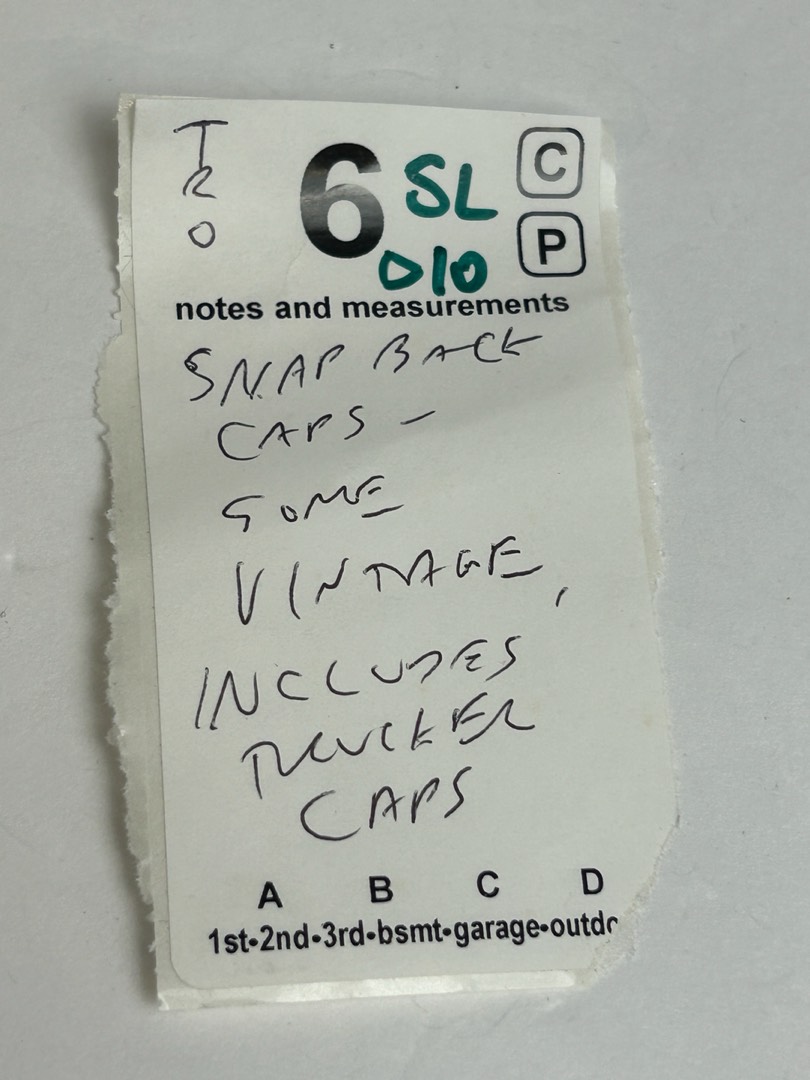 T
R
O
6 SL C
D10 P
notes and measurements
SNAP BACK
CAPS –
SOME
VINTAGE,
INCLUDES
TRUCKER
CAPS
A B C D
1st•2nd•3rd•bsmt•garage•outdo